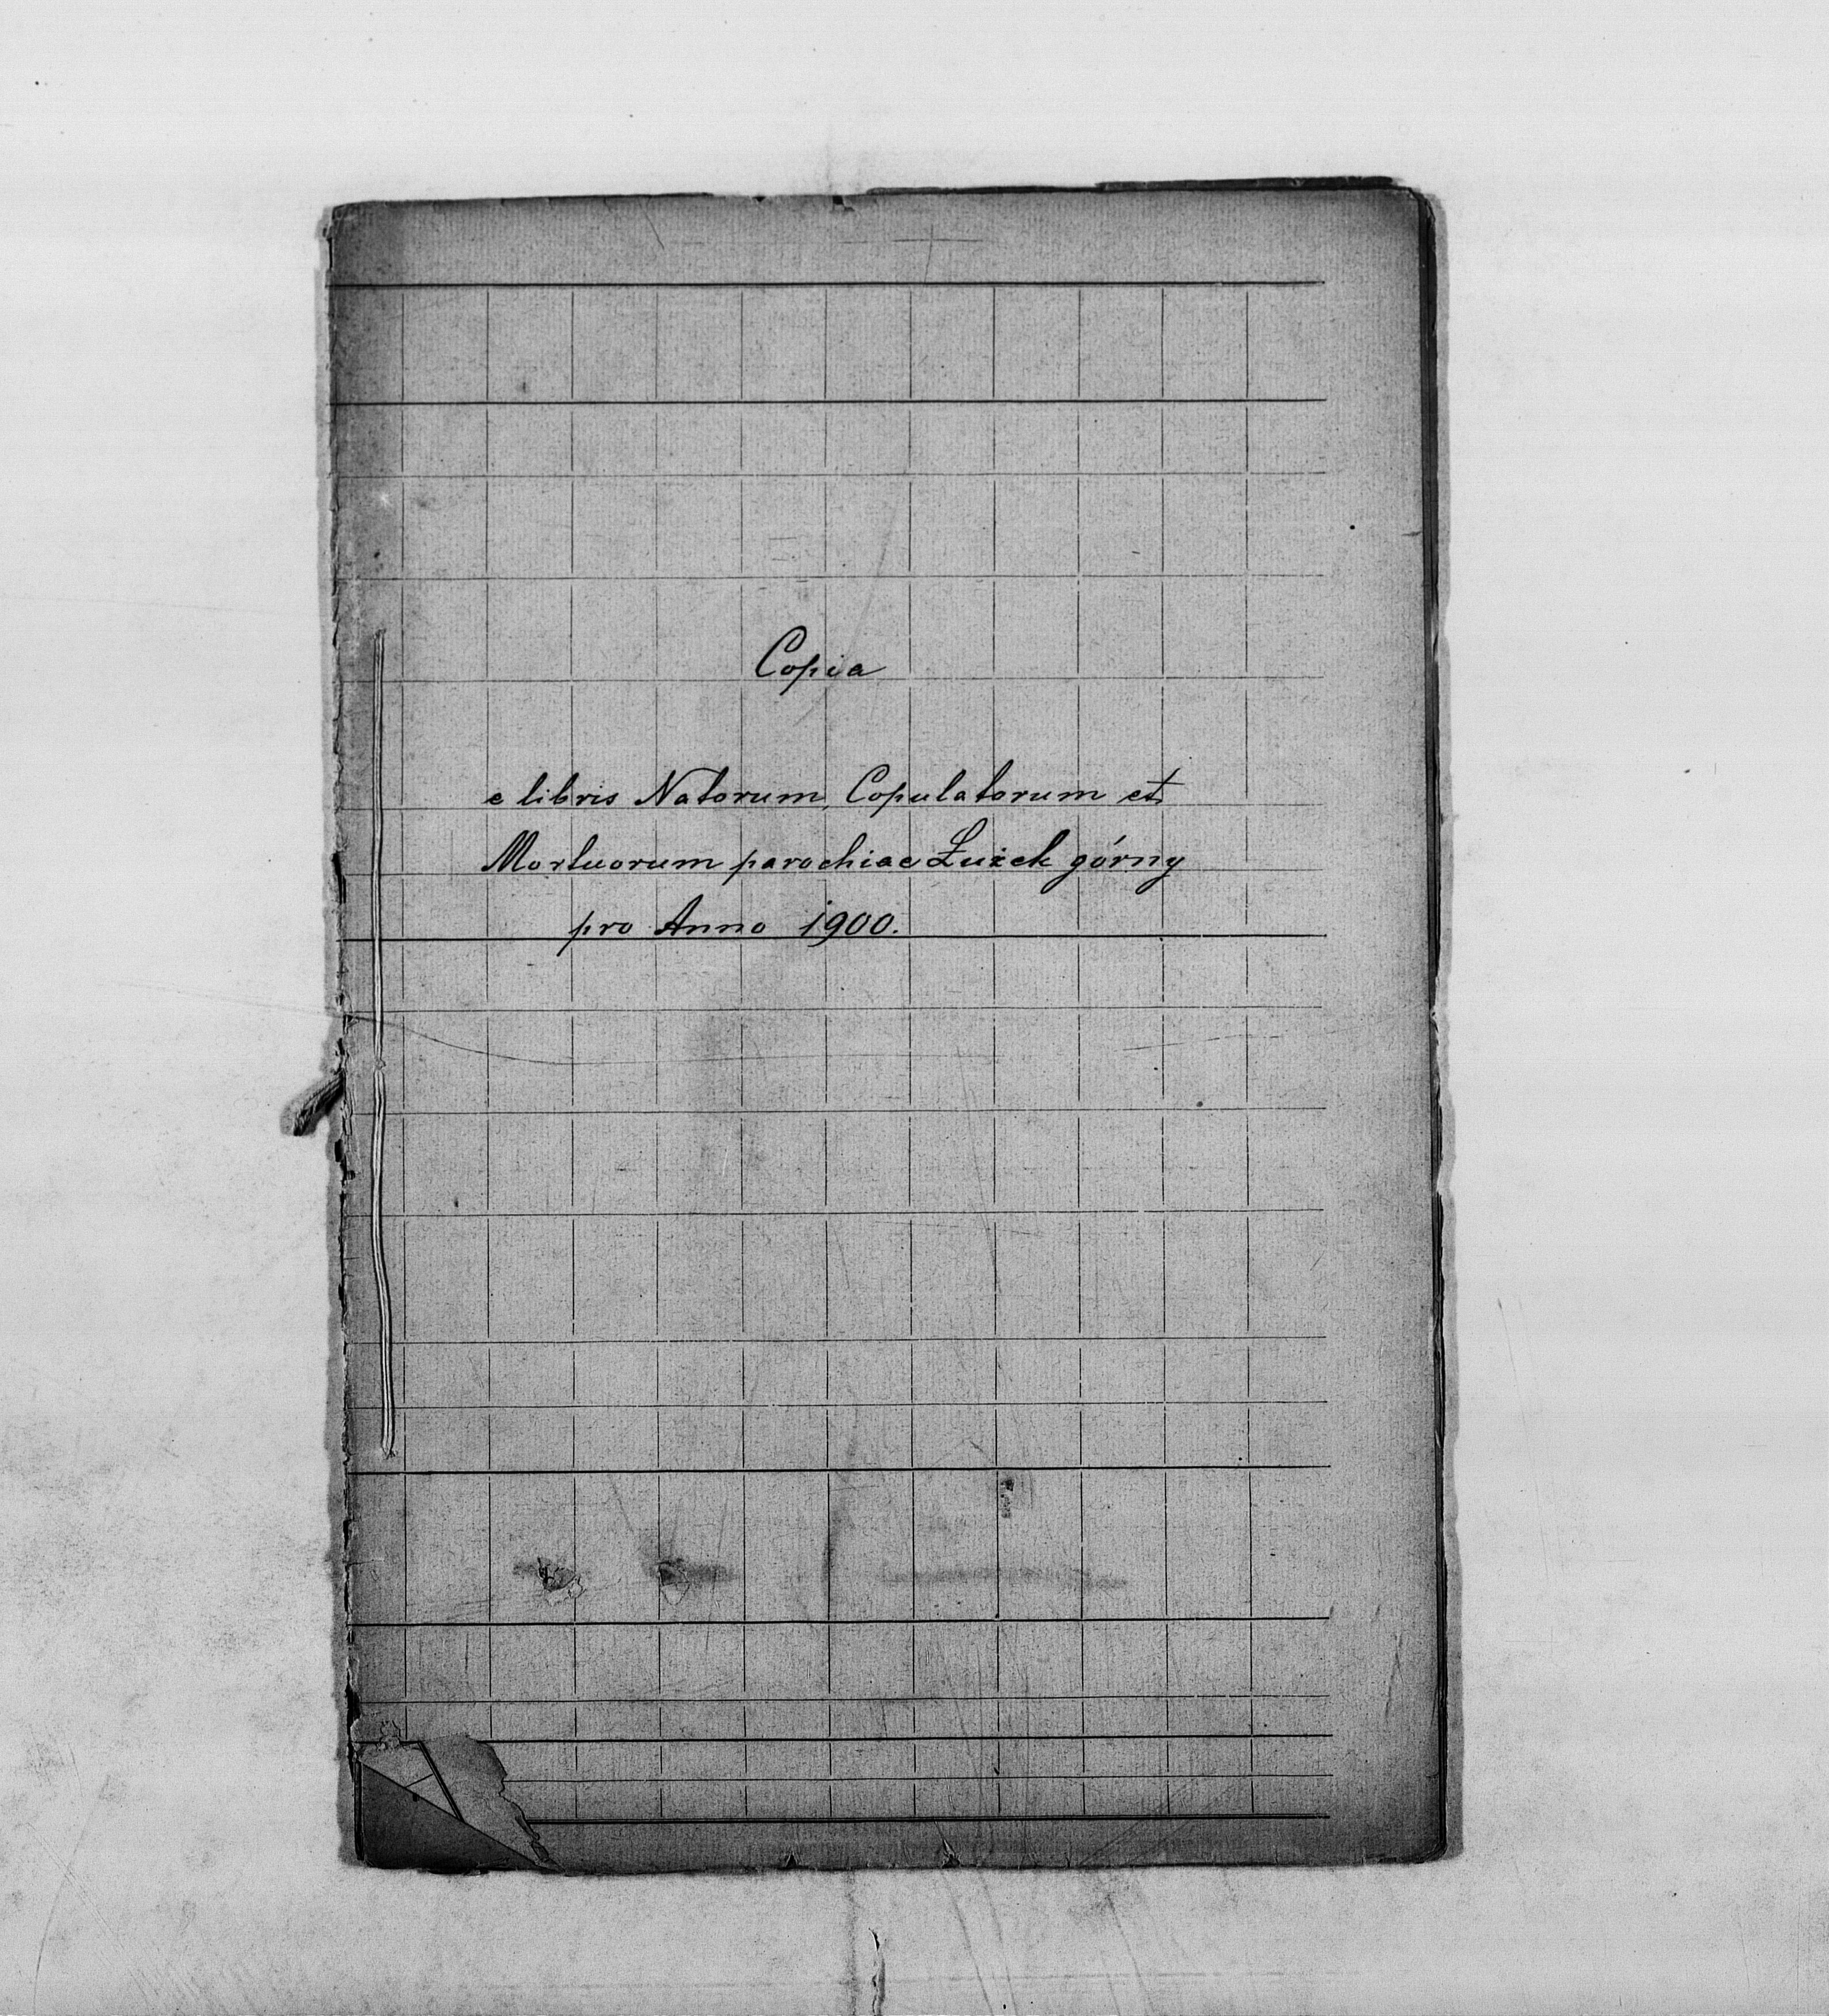 Copia
e libris Natorum, Copulatorum et
Mortuorum parochiae Łużek górny
pro Anno 1900.